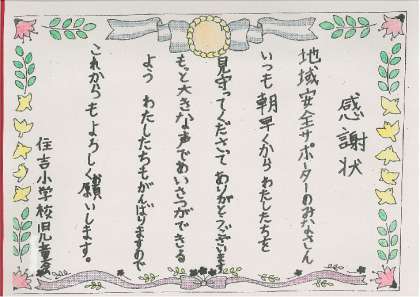 感謝状
地域安全サポーターのみなさん
いつも朝早くからわたしたちを
見守ってくださってありがとうございます
もっと大きな声であいさつができる
よう わたしたちもがんばりますので
これからもよろしくお願いします。
住吉小学校児童会